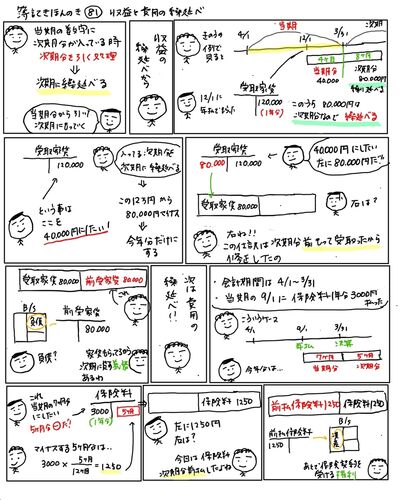 簿記きほんのき 81 収益と費用の繰延べ
当期の数字に
次期分が入っている時
次期分を引く処理
次期に繰延べる
当期分から引いて
次期に持っていく
収益の
繰延べから
きのうの
例で
見ると
当期
次期
4/1
12/1
3/31
4ヶ月
8ヶ月
当期分
40,000
次期分
80,000
繰り延べる
12/1に
年払でもらった
受取家賃
120,000
(1年分)
このうち 80,000円は
次期分なので 繰延べる
受取家賃
120,000
という事は
ここを
40,000円にしたい!
入ってる次期分を
次期に繰延べる
この12万円から
80,000円マイナス
今年分だけに
する
受取家賃
80,000
120,000
40,000円にしたい
左に80,000円だな
受取家賃80,000
右は?
右ね!!
この仕訳は次期分前もって受取ったから
修正したの
受取家賃80,000
前受家賃80,000
これ
B/S
負債
前受家賃
80,000
負債?
家賃もらってるから
次期に貸す義務
あるわ
次は費用の
繰延べ!!
・会計期間は 4/1~3/31
・当期の9/1に保険料1年分3000円
払った
こういうケース
4/1
9/1
3/31
年払い
決算
7ヶ月
5ヶ月
今年分は…
当期分
次期分
これ
当期の7ヶ月分
にしたい
5ヶ月分⊖だな?
保険料
3000
(1年分)
5ヶ月
マイナスする5ヶ月分は…
3000 × 5ヶ月/12ヶ月 = 1250
保険料 1250
右に1250円
左は?
今回は保険料
次期分前払したよね
前払保険料1250
保険料1250
前払保険料
1250
B/S
資産
あとで保険契約を
受ける権利